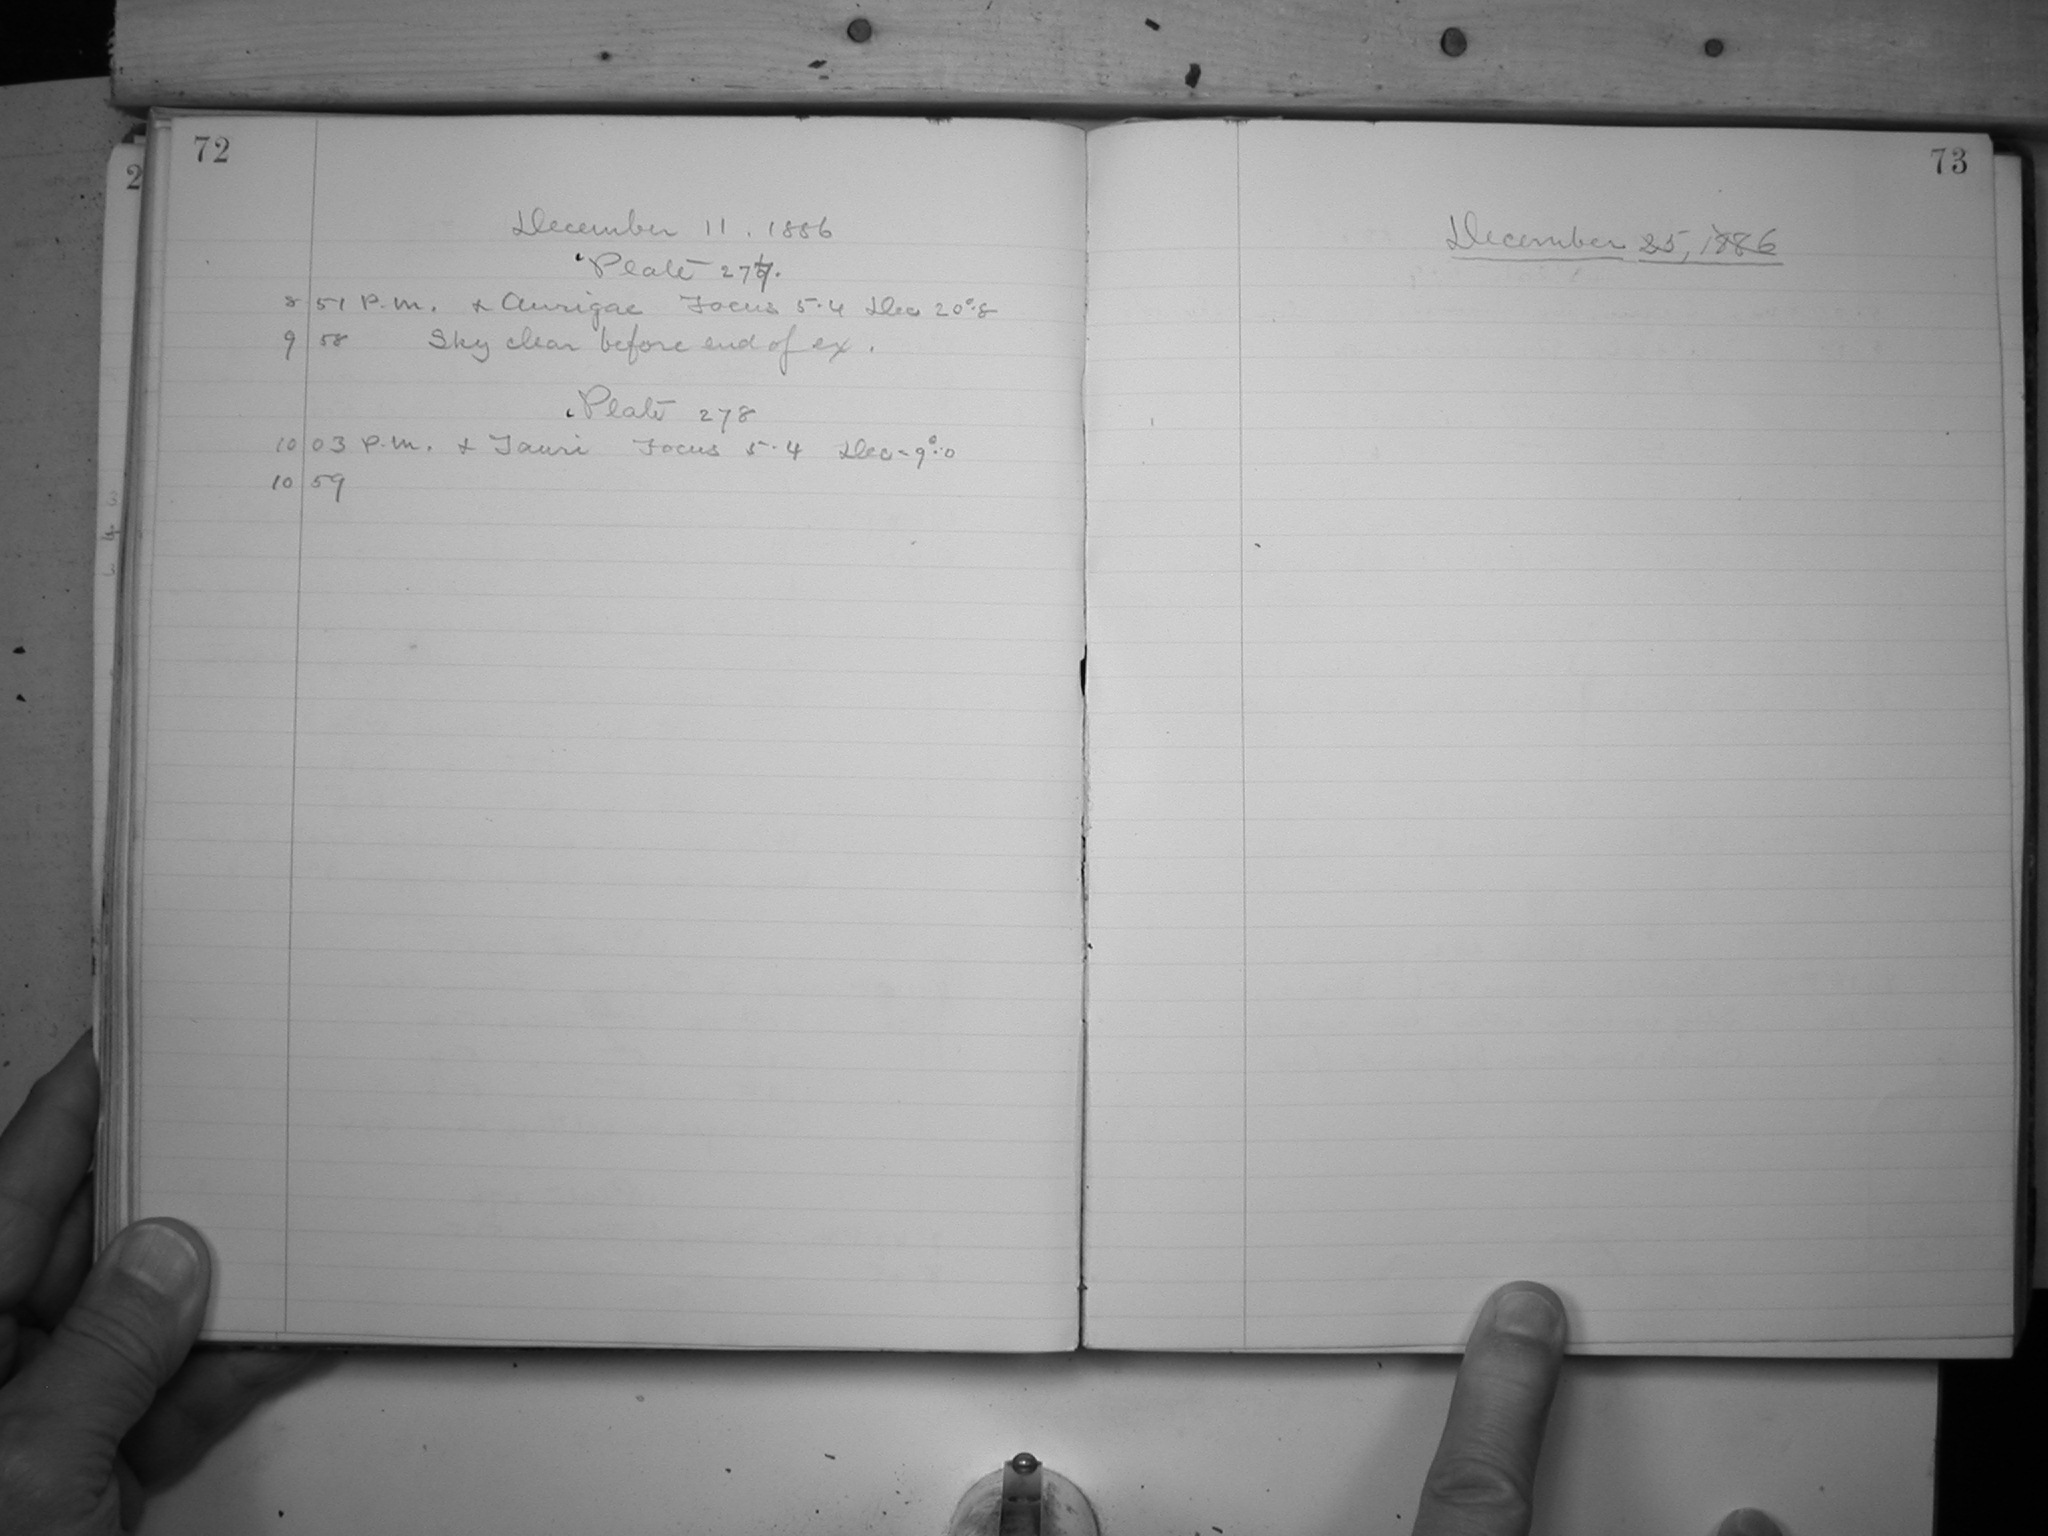 72
December 11. 1886
Plate 277.
8 51 P.M. α Aurigae Focus 5.4 Dec 20°.8
9 58 Sky clear before end of ex.
Plate 278
10 03 P.M. α Tauri Focus 5.4 Dec - 9°.0
10 59
73
December 25, 1886
2